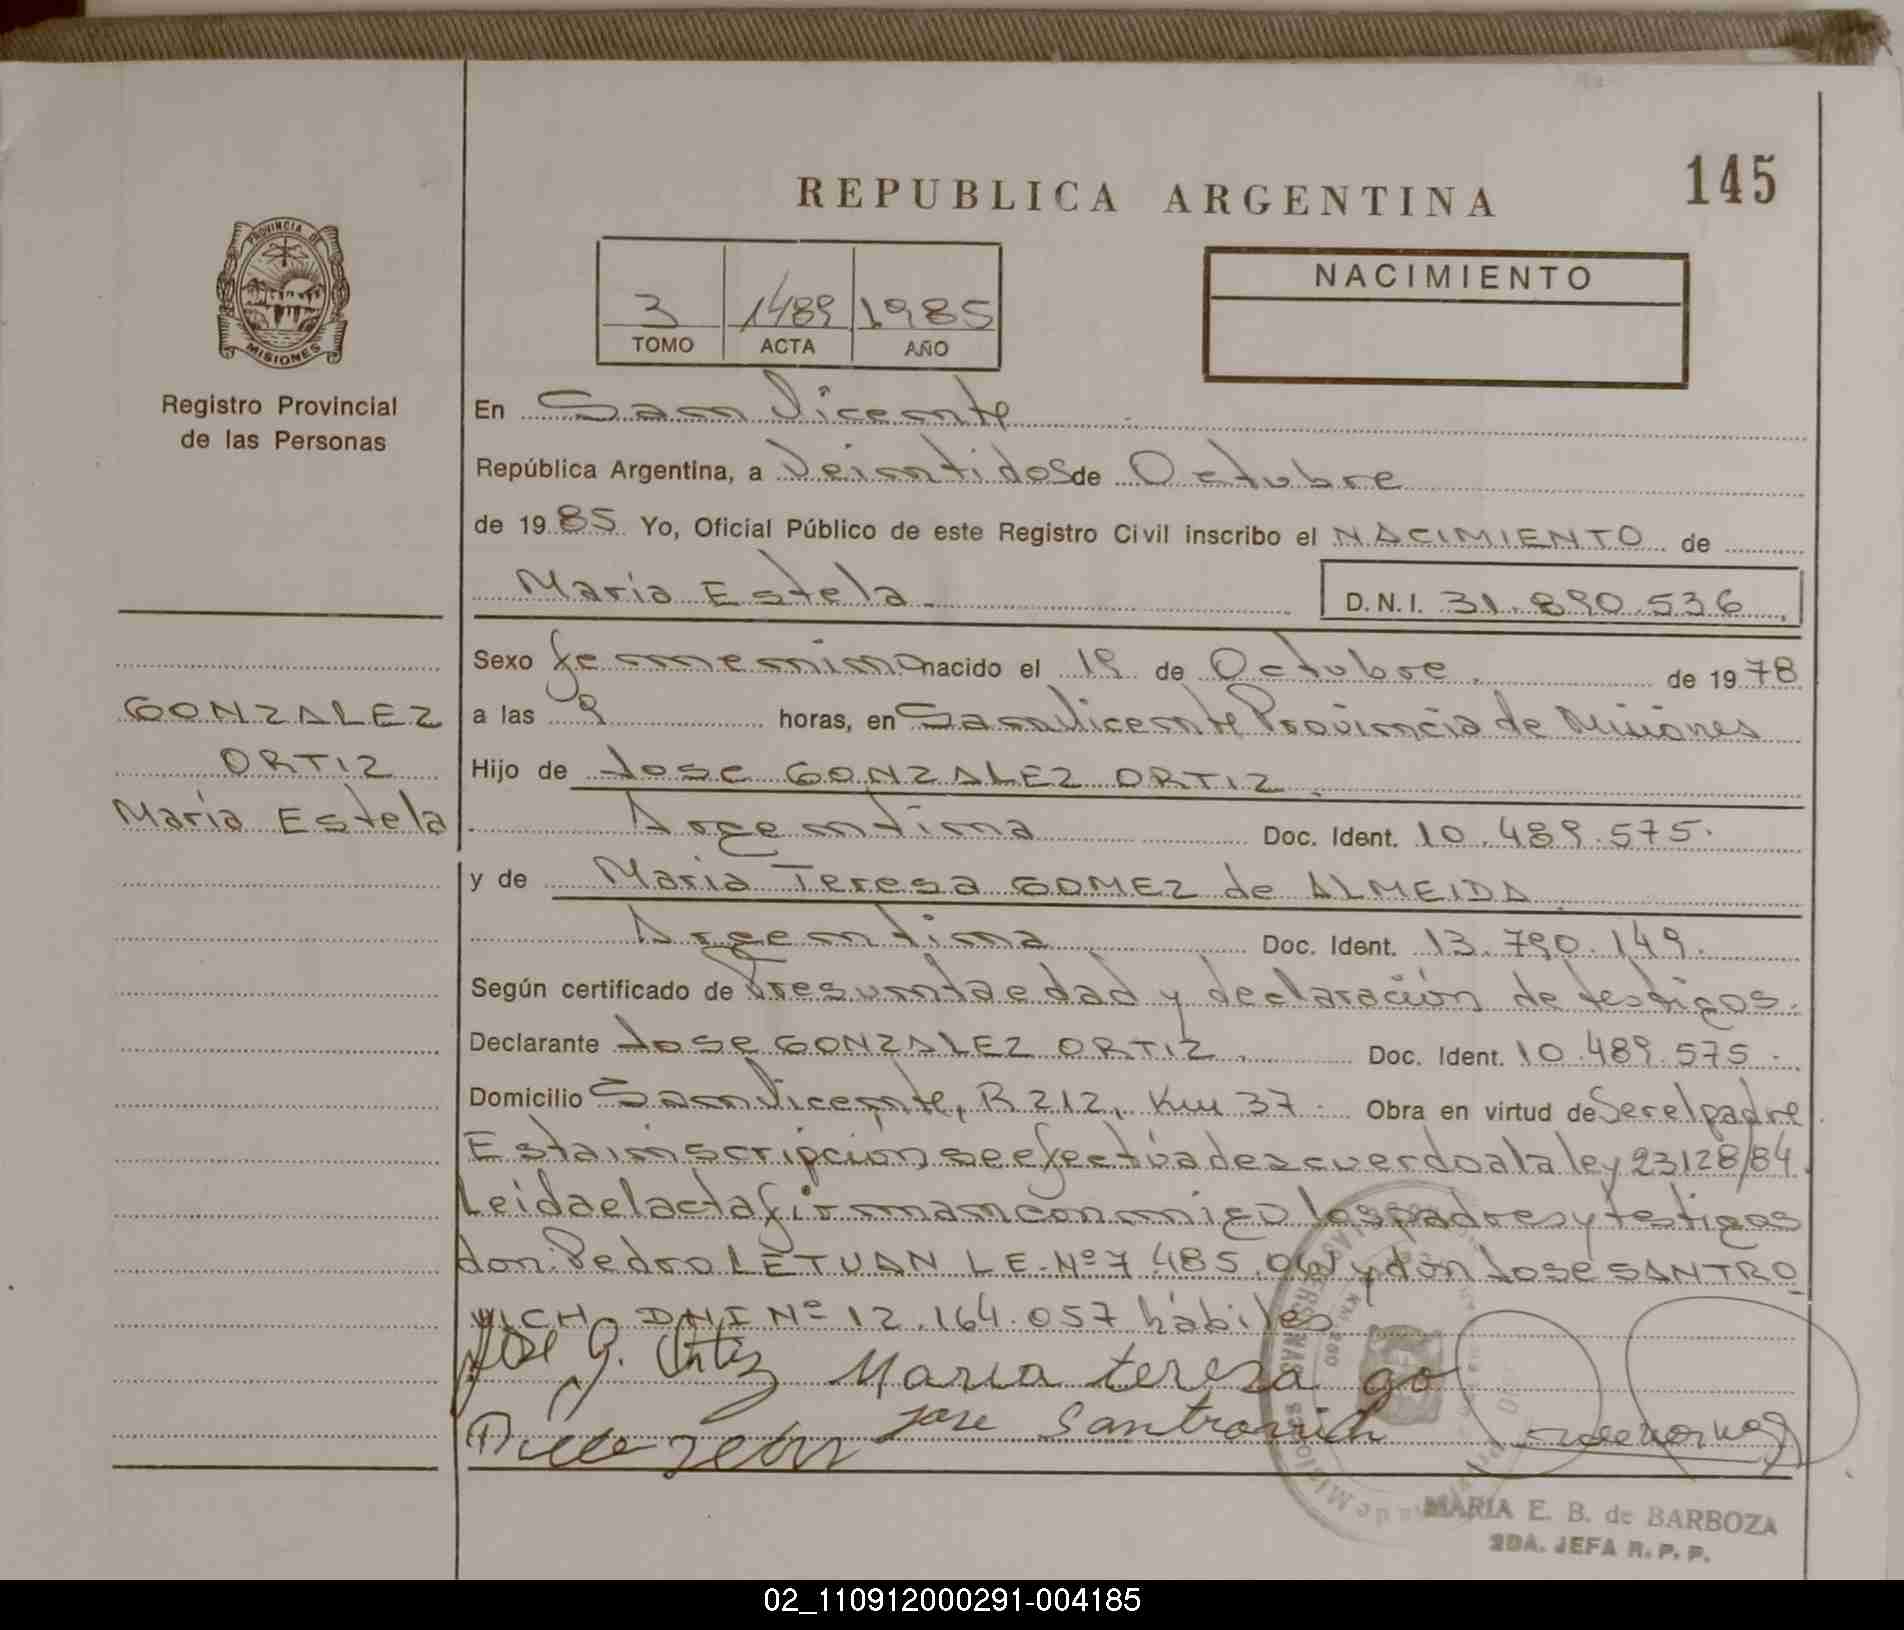 145
REPUBLICA ARGENTINA
PROVINCIA DE
MISIONES
Registro Provincial
de las Personas
3 1489 1985
TOMO ACTA AÑO
NACIMIENTO
En San Vicente
República Argentina, a Veintidos de Octubre
de 1985 Yo, Oficial Público de este Registro Civil inscribo el NACIMIENTO de
María Estela D.N.I. 31.890.536
Sexo femenino nacido el 19 de Octubre de 1978
GONZALEZ
ORTIZ
María Estela
a las 9 horas, en San Vicente Provincia de Misiones
Hijo de Jose GONZALEZ ORTIZ
Argentina Doc. Ident. 10.489.575.
y de Maria Teresa GOMEZ de ALMEIDA
Argentina Doc. Ident. 13.790.149.
Según certificado de Presunta edad y declaración de testigos.
Declarante Jose GONZALEZ ORTIZ. Doc. Ident. 10.489.575.
Domicilio San Vicente, R 212, Km 37. Obra en virtud de Ser el padre
Esta inscripción se efectúa de acuerdo a la ley 23128/84.
Leida el acta firman conmigo los padres y testigos
don: Pedro LETUAN L E. Nº 7.485. y don Jose SANTRO
VICH DNI Nº 12.164.057 hábiles
Jose G. Ortiz Maria teresa go
Jose Santrovich
MARIA E. B. de BARBOZA
2DA. JEFA R. P. P.
02_110912000291-004185